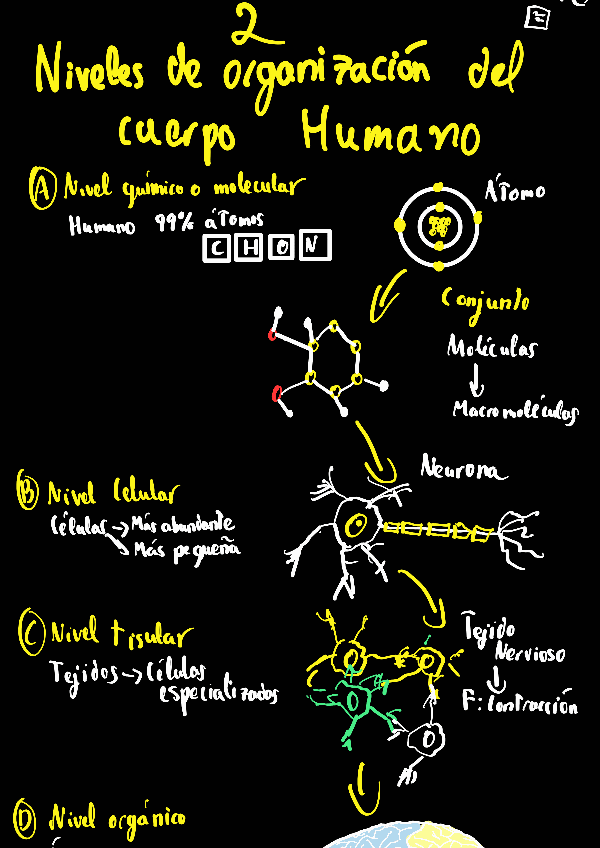 2
Niveles de organización del
cuerpo Humano
A Nivel químico o molecular
Humano 99% átomos
C H O N
Átomo
Conjunto
Moléculas
↓
Macromoléculas
Neurona
B Nivel Celular
Células → Más abundante
→ Más pequeña
C Nivel tisular
Tejidos → Células
especializadas
Tejido
Nervioso
↓
F: Contracción
D Nivel orgánico